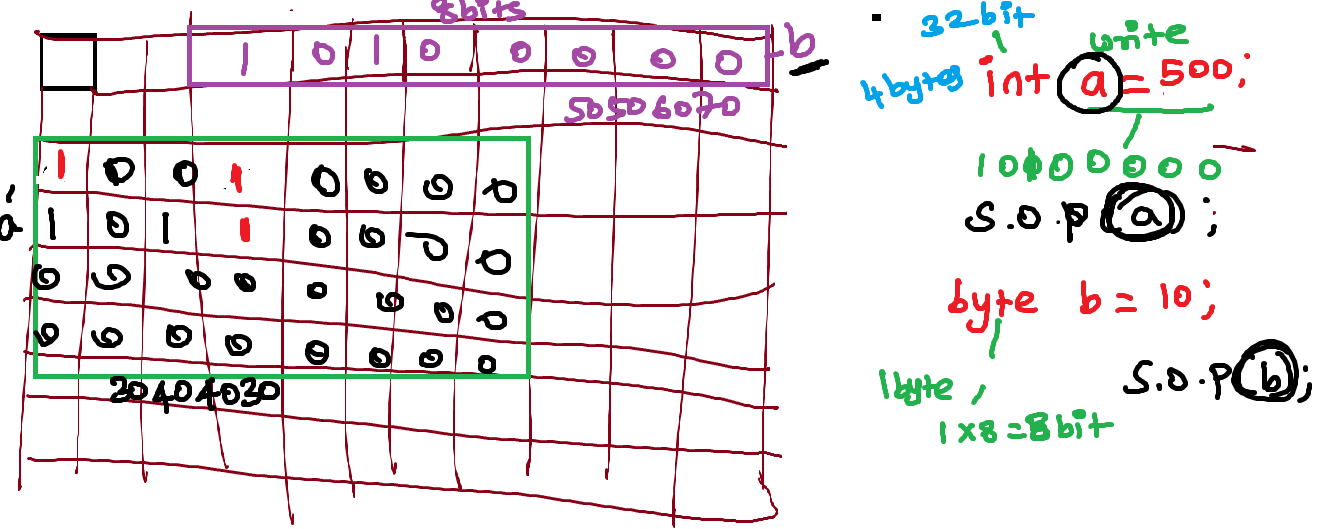 8bits
1 0 1 0 0 0 0 0 b
50506070
1 0 0 1 0 0 0 0
a
1 0 1 1 0 0 0 0
0 0 0 0 0 0 0 0
0 0 0 0 0 0 0 0
20404030
32bit
write
4bytes int a = 500;
S.O.P(a);
byte b = 10;
1byte
1x8=8bit
S.O.P(b);